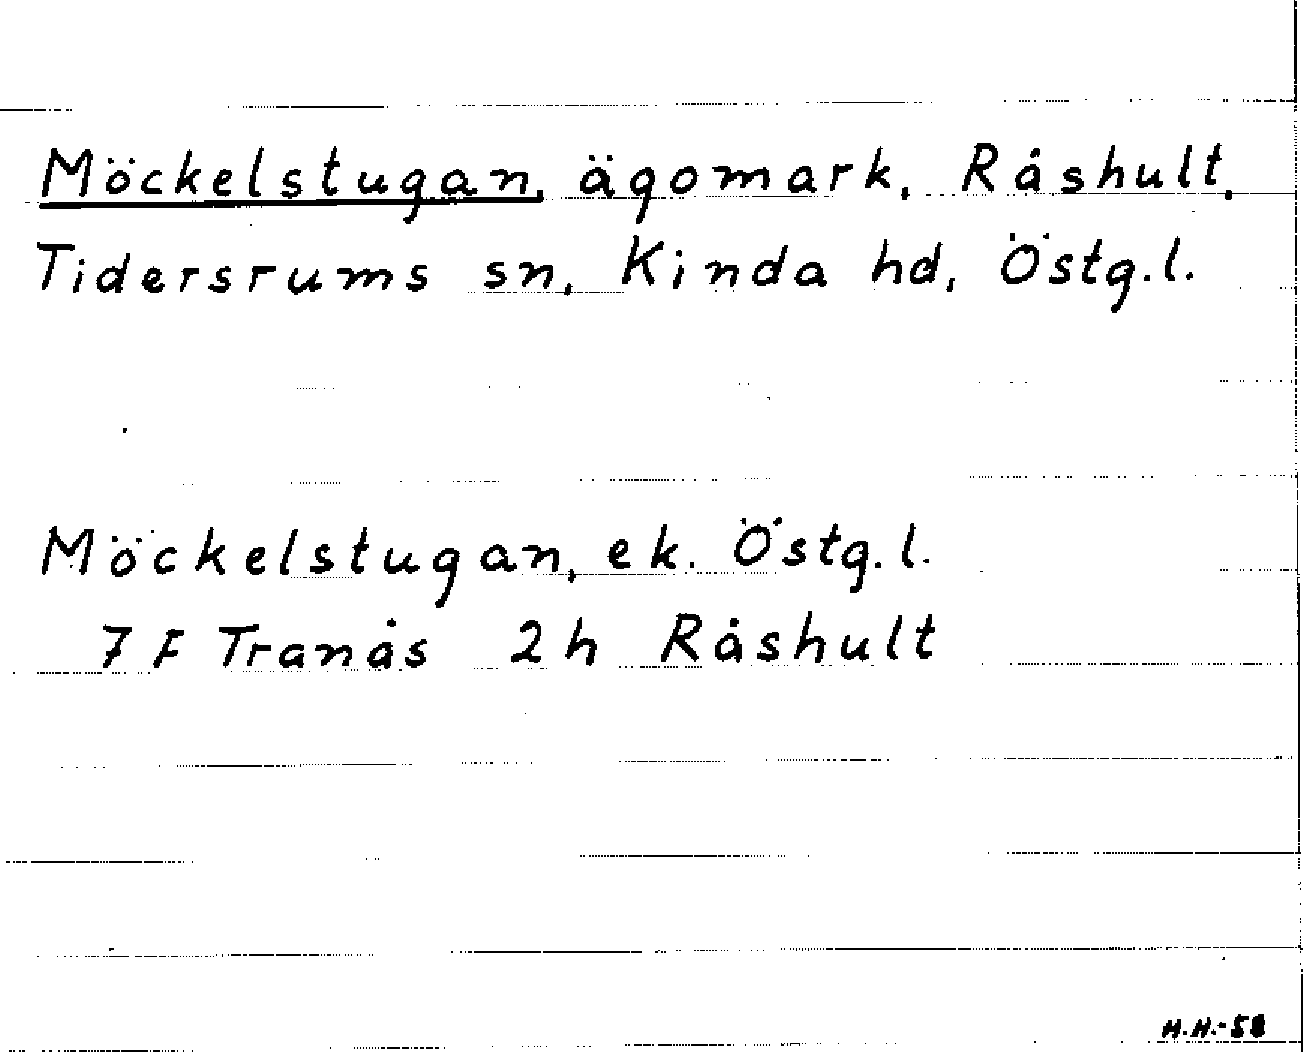 Möckelstugan, ägomark, Råshult,
Tidersrums sn, Kinda hd, Östg.l.
Möckelstugan, ek. Östg.l.
7 F Tranås 2h Råshult
H.H.-58